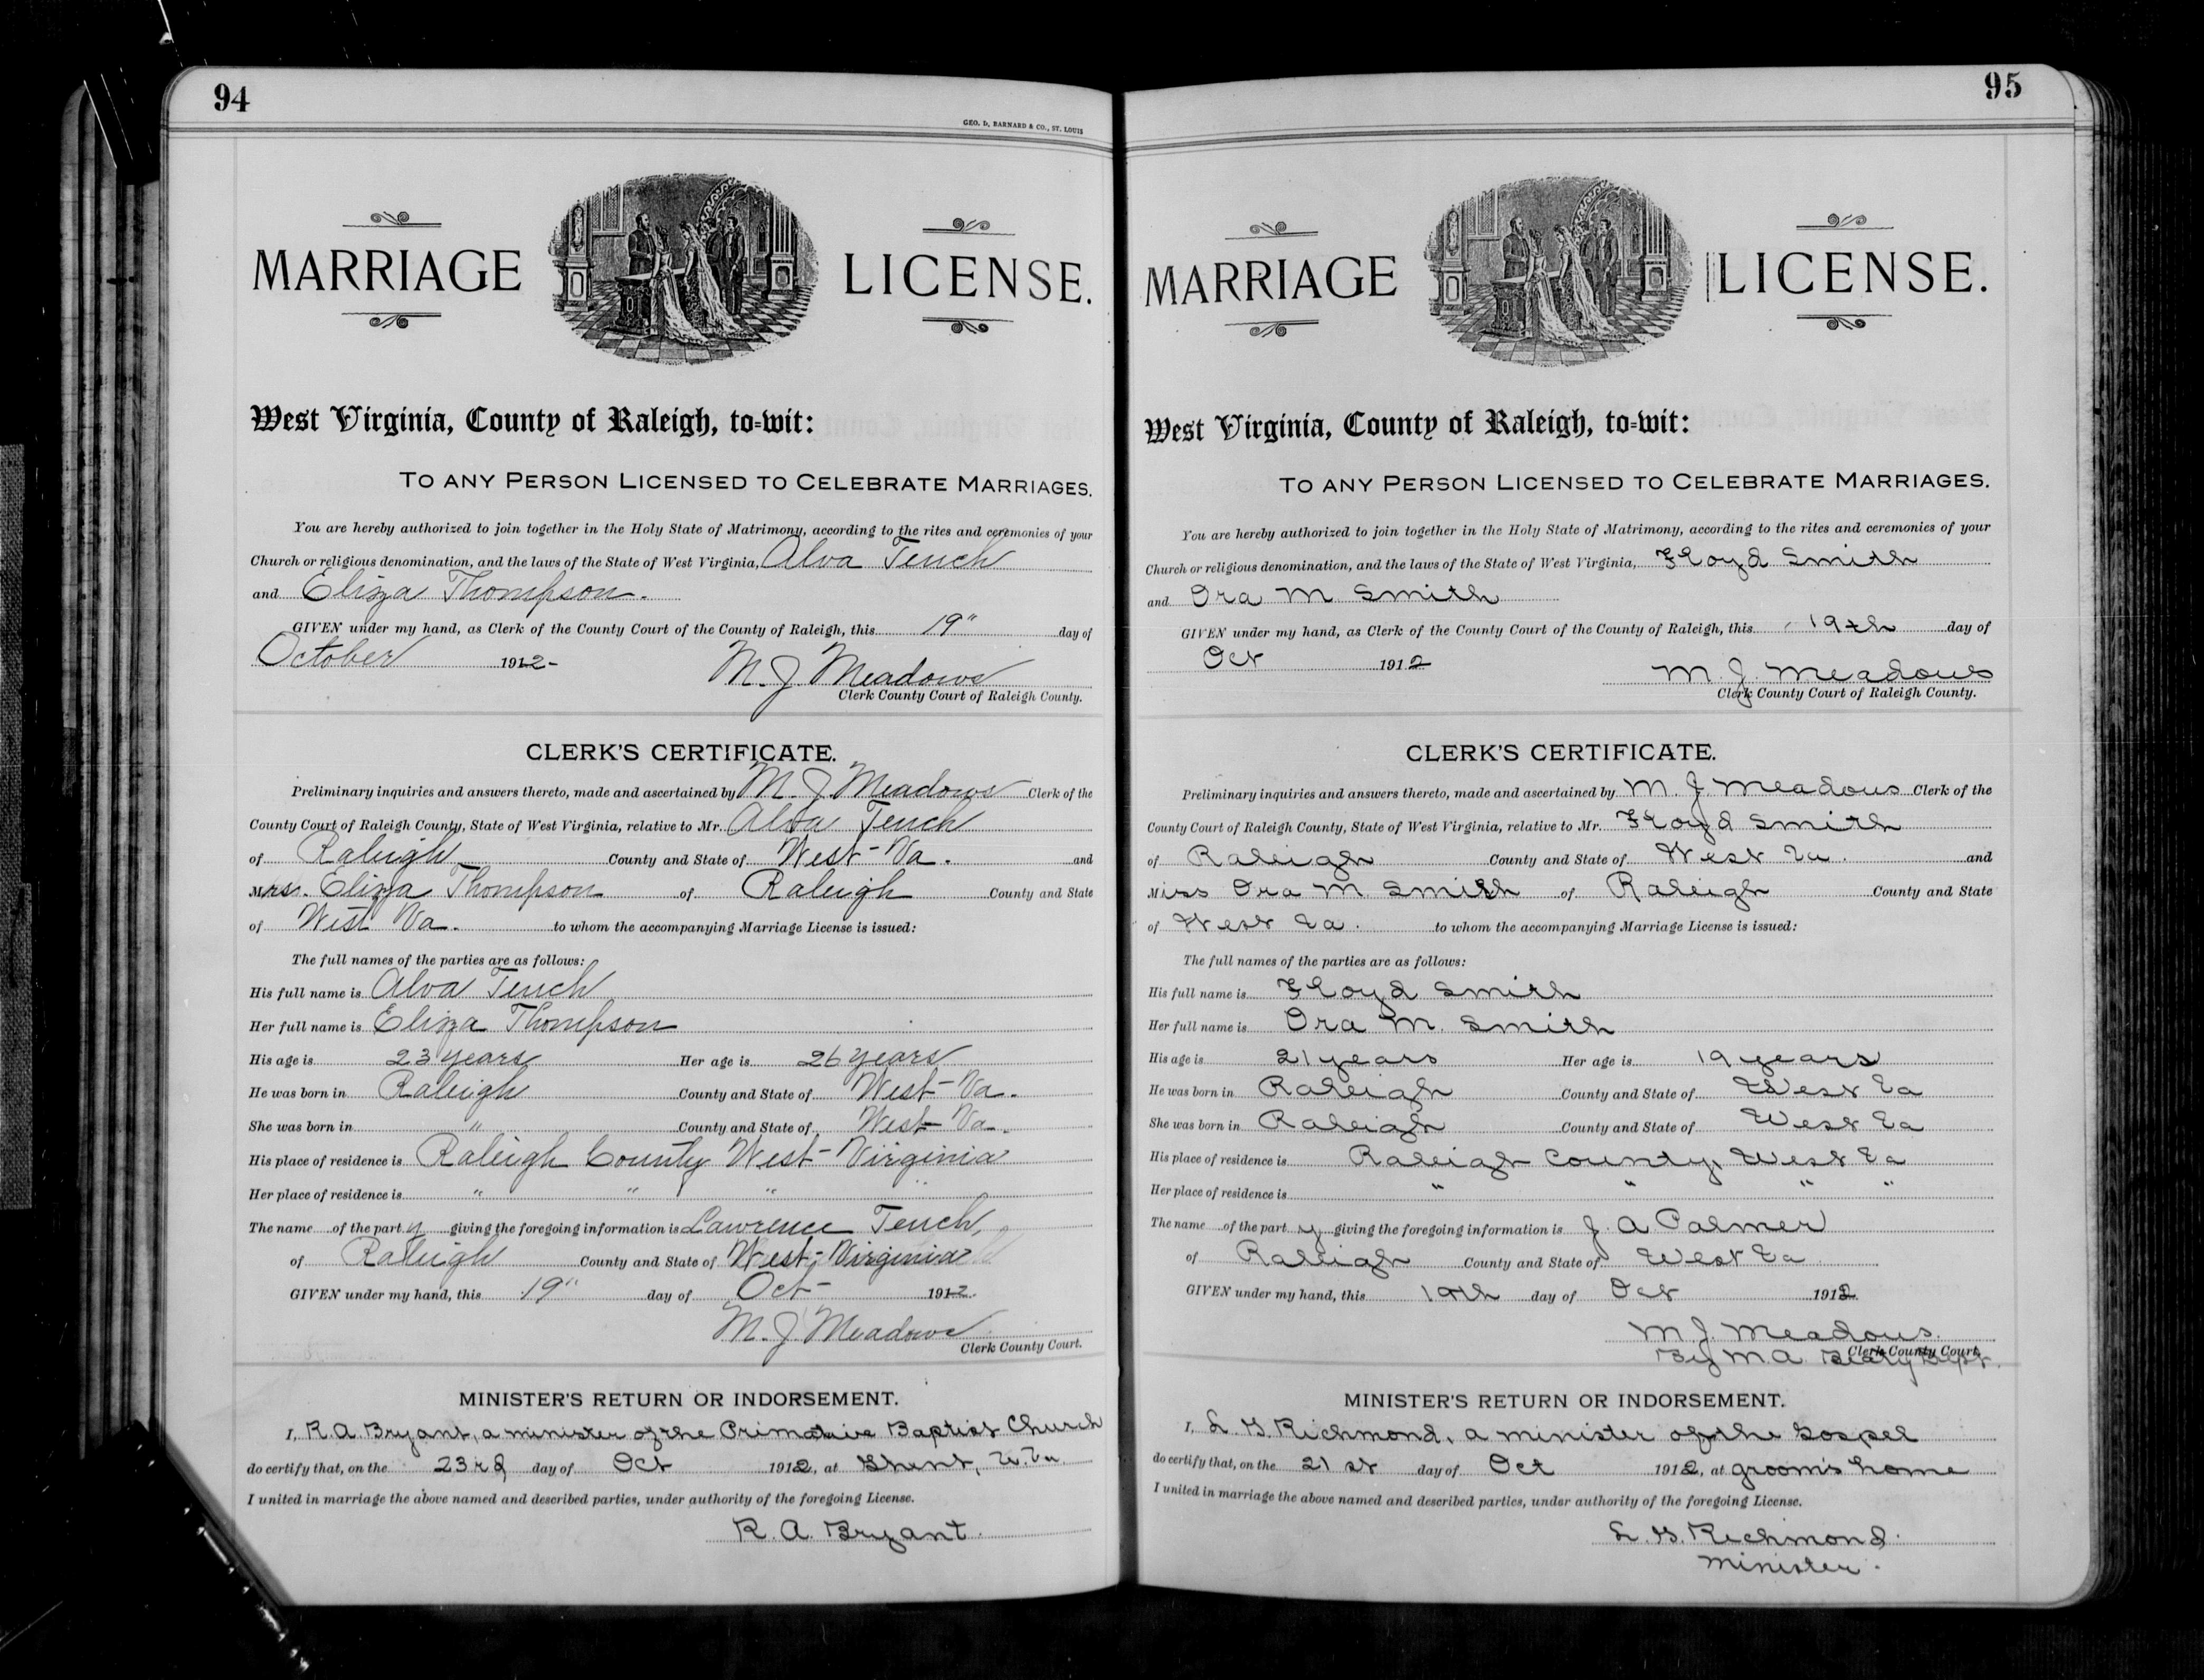 94
GEO. D. BARNARD & CO., ST. LOUIS
MARRIAGE LICENSE.
West Virginia, County of Raleigh, to=wit:
TO ANY PERSON LICENSED TO CELEBRATE MARRIAGES.
You are hereby authorized to join together in the Holy State of Matrimony, according to the rites and ceremonies of your
Church or religious denomination, and the laws of the State of West Virginia, Alva Tench
and Eliza Thompson.
GIVEN under my hand, as Clerk of the County Court of the County of Raleigh, this 19" day of
October 1912-
M. J. Meadows
Clerk County Court of Raleigh County.
CLERK'S CERTIFICATE.
Preliminary inquiries and answers thereto, made and ascertained by M. J. Meadows Clerk of the
County Court of Raleigh County, State of West Virginia, relative to Mr. Alva Tench
of Raleigh County and State of West-Va. and
Mrs. Eliza Thompson of Raleigh County and State
of West Va. to whom the accompanying Marriage License is issued:
The full names of the parties are as follows:
His full name is Alva Tench
Her full name is Eliza Thompson
His age is 23 years Her age is 26 years
He was born in Raleigh County and State of West-Va.
She was born in " County and State of West-Va.
His place of residence is Raleigh County West-Virginia
Her place of residence is " " " "
The name of the party giving the foregoing information is Lawrence Tench,
of Raleigh County and State of West-Virginia
GIVEN under my hand, this 19" day of Oct- 1912.
M. J. Meadows
Clerk County Court.
MINISTER'S RETURN OR INDORSEMENT.
I, R. A. Bryant, a minister of the Primative Baptist Church
do certify that, on the 23rd day of Oct 1912, at Ghent, W. Va.
I united in marriage the above named and described parties, under authority of the foregoing License.
R. A. Bryant.
95
MARRIAGE LICENSE.
West Virginia, County of Raleigh, to=wit:
TO ANY PERSON LICENSED TO CELEBRATE MARRIAGES.
You are hereby authorized to join together in the Holy State of Matrimony, according to the rites and ceremonies of your
Church or religious denomination, and the laws of the State of West Virginia, Floyd Smith
and Ora M Smith
GIVEN under my hand, as Clerk of the County Court of the County of Raleigh, this 19th day of
Oct 1912
M. J. Meadows
Clerk County Court of Raleigh County.
CLERK'S CERTIFICATE.
Preliminary inquiries and answers thereto, made and ascertained by M. J. Meadows Clerk of the
County Court of Raleigh County, State of West Virginia, relative to Mr. Floyd Smith
of Raleigh County and State of West Va. and
Miss Ora M Smith of Raleigh County and State
of West Va. to whom the accompanying Marriage License is issued:
The full names of the parties are as follows:
His full name is Floyd Smith
Her full name is Ora M. Smith
His age is 21 years Her age is 19 years
He was born in Raleigh County and State of West Va
She was born in Raleigh County and State of West Va
His place of residence is Raleigh County, West Va
Her place of residence is " " " "
The name of the party giving the foregoing information is J. A Palmer
of Raleigh County and State of West Va
GIVEN under my hand, this 19th day of Oct 1912.
M J. Meadows.
Clerk County Court.
By M. A.
MINISTER'S RETURN OR INDORSEMENT.
I, L. G. Richmond, a minister of the Gospel
do certify that, on the 21st day of Oct 1912, at groom's home
I united in marriage the above named and described parties, under authority of the foregoing License.
L. G. Richmond.
Minister.